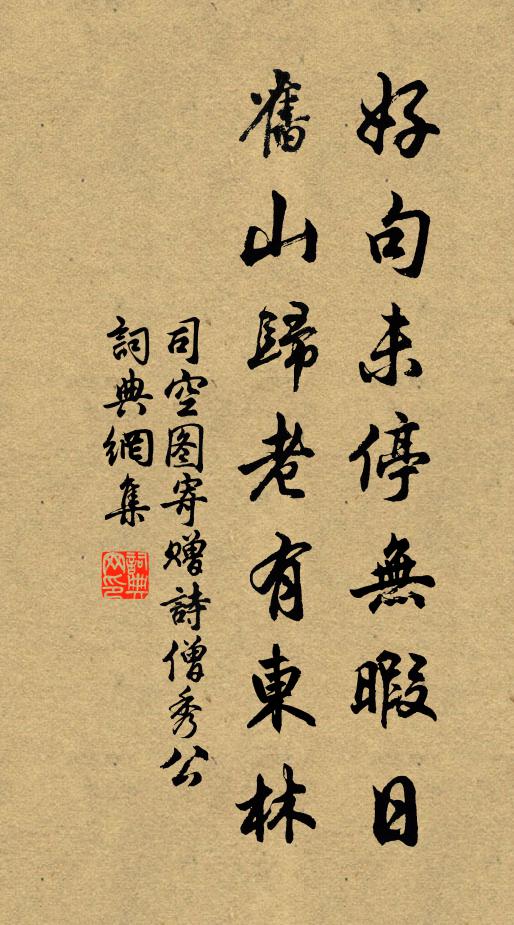 好句未停無暇日
舊山歸老有東林
司空图寄赠詩僧秀公
詞典網集
詞典網印